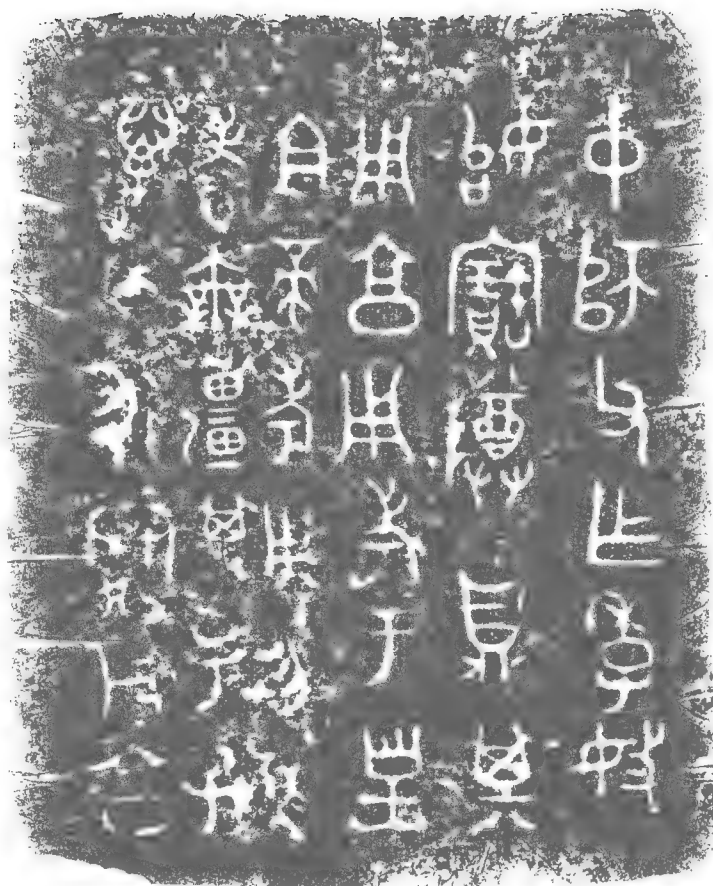 中師父乍季妓
始寶尊鼎其
用享用考于皇
且帝考用易眉
壽無疆其子孫
萬年永寶用享